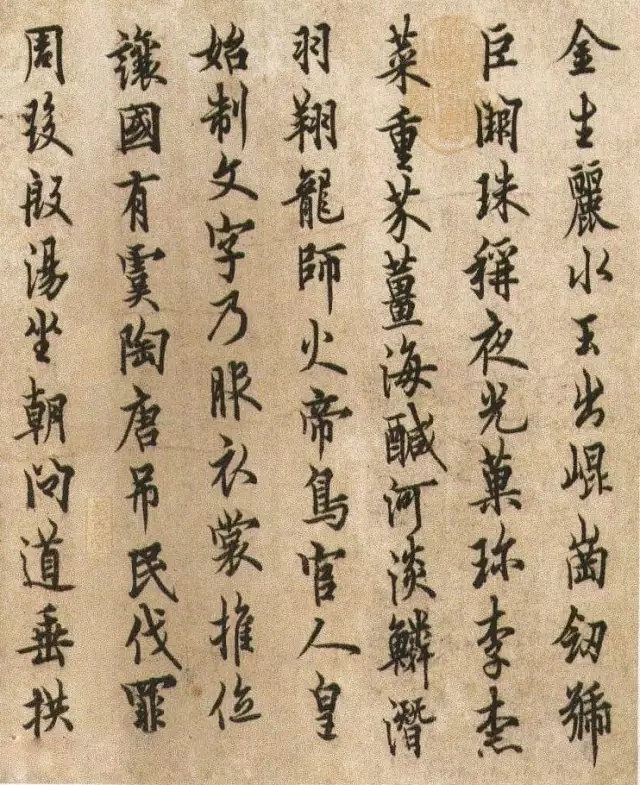 金生麗水玉出崐崗劒號
巨闕珠稱夜光菓珎李柰
菜重芥薑海鹹河淡鱗潛
羽翔龍師火帝鳥官人皇
始制文字乃服衣裳推位
讓國有虞陶唐吊民伐罪
周發殷湯坐朝問道垂拱